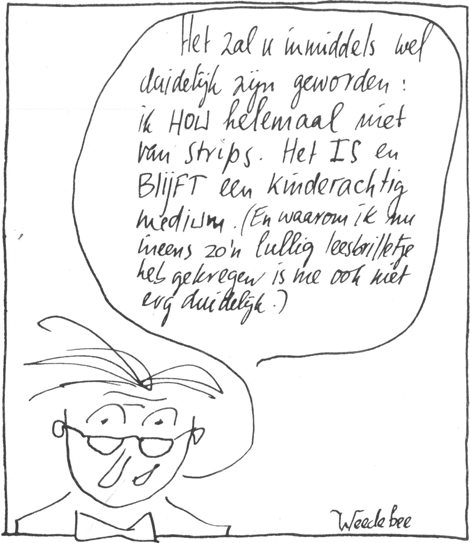 Het zal u inmiddels wel
duidelijk zijn geworden:
ik HOU helemaal niet
van strips. Het IS en
BlijFT een kinderachtig
medium. (En waarom ik nu
ineens zo'n lullig leesbrilletje
heb gekregen is me ook niet
erg duidelijk.)
Weedebee